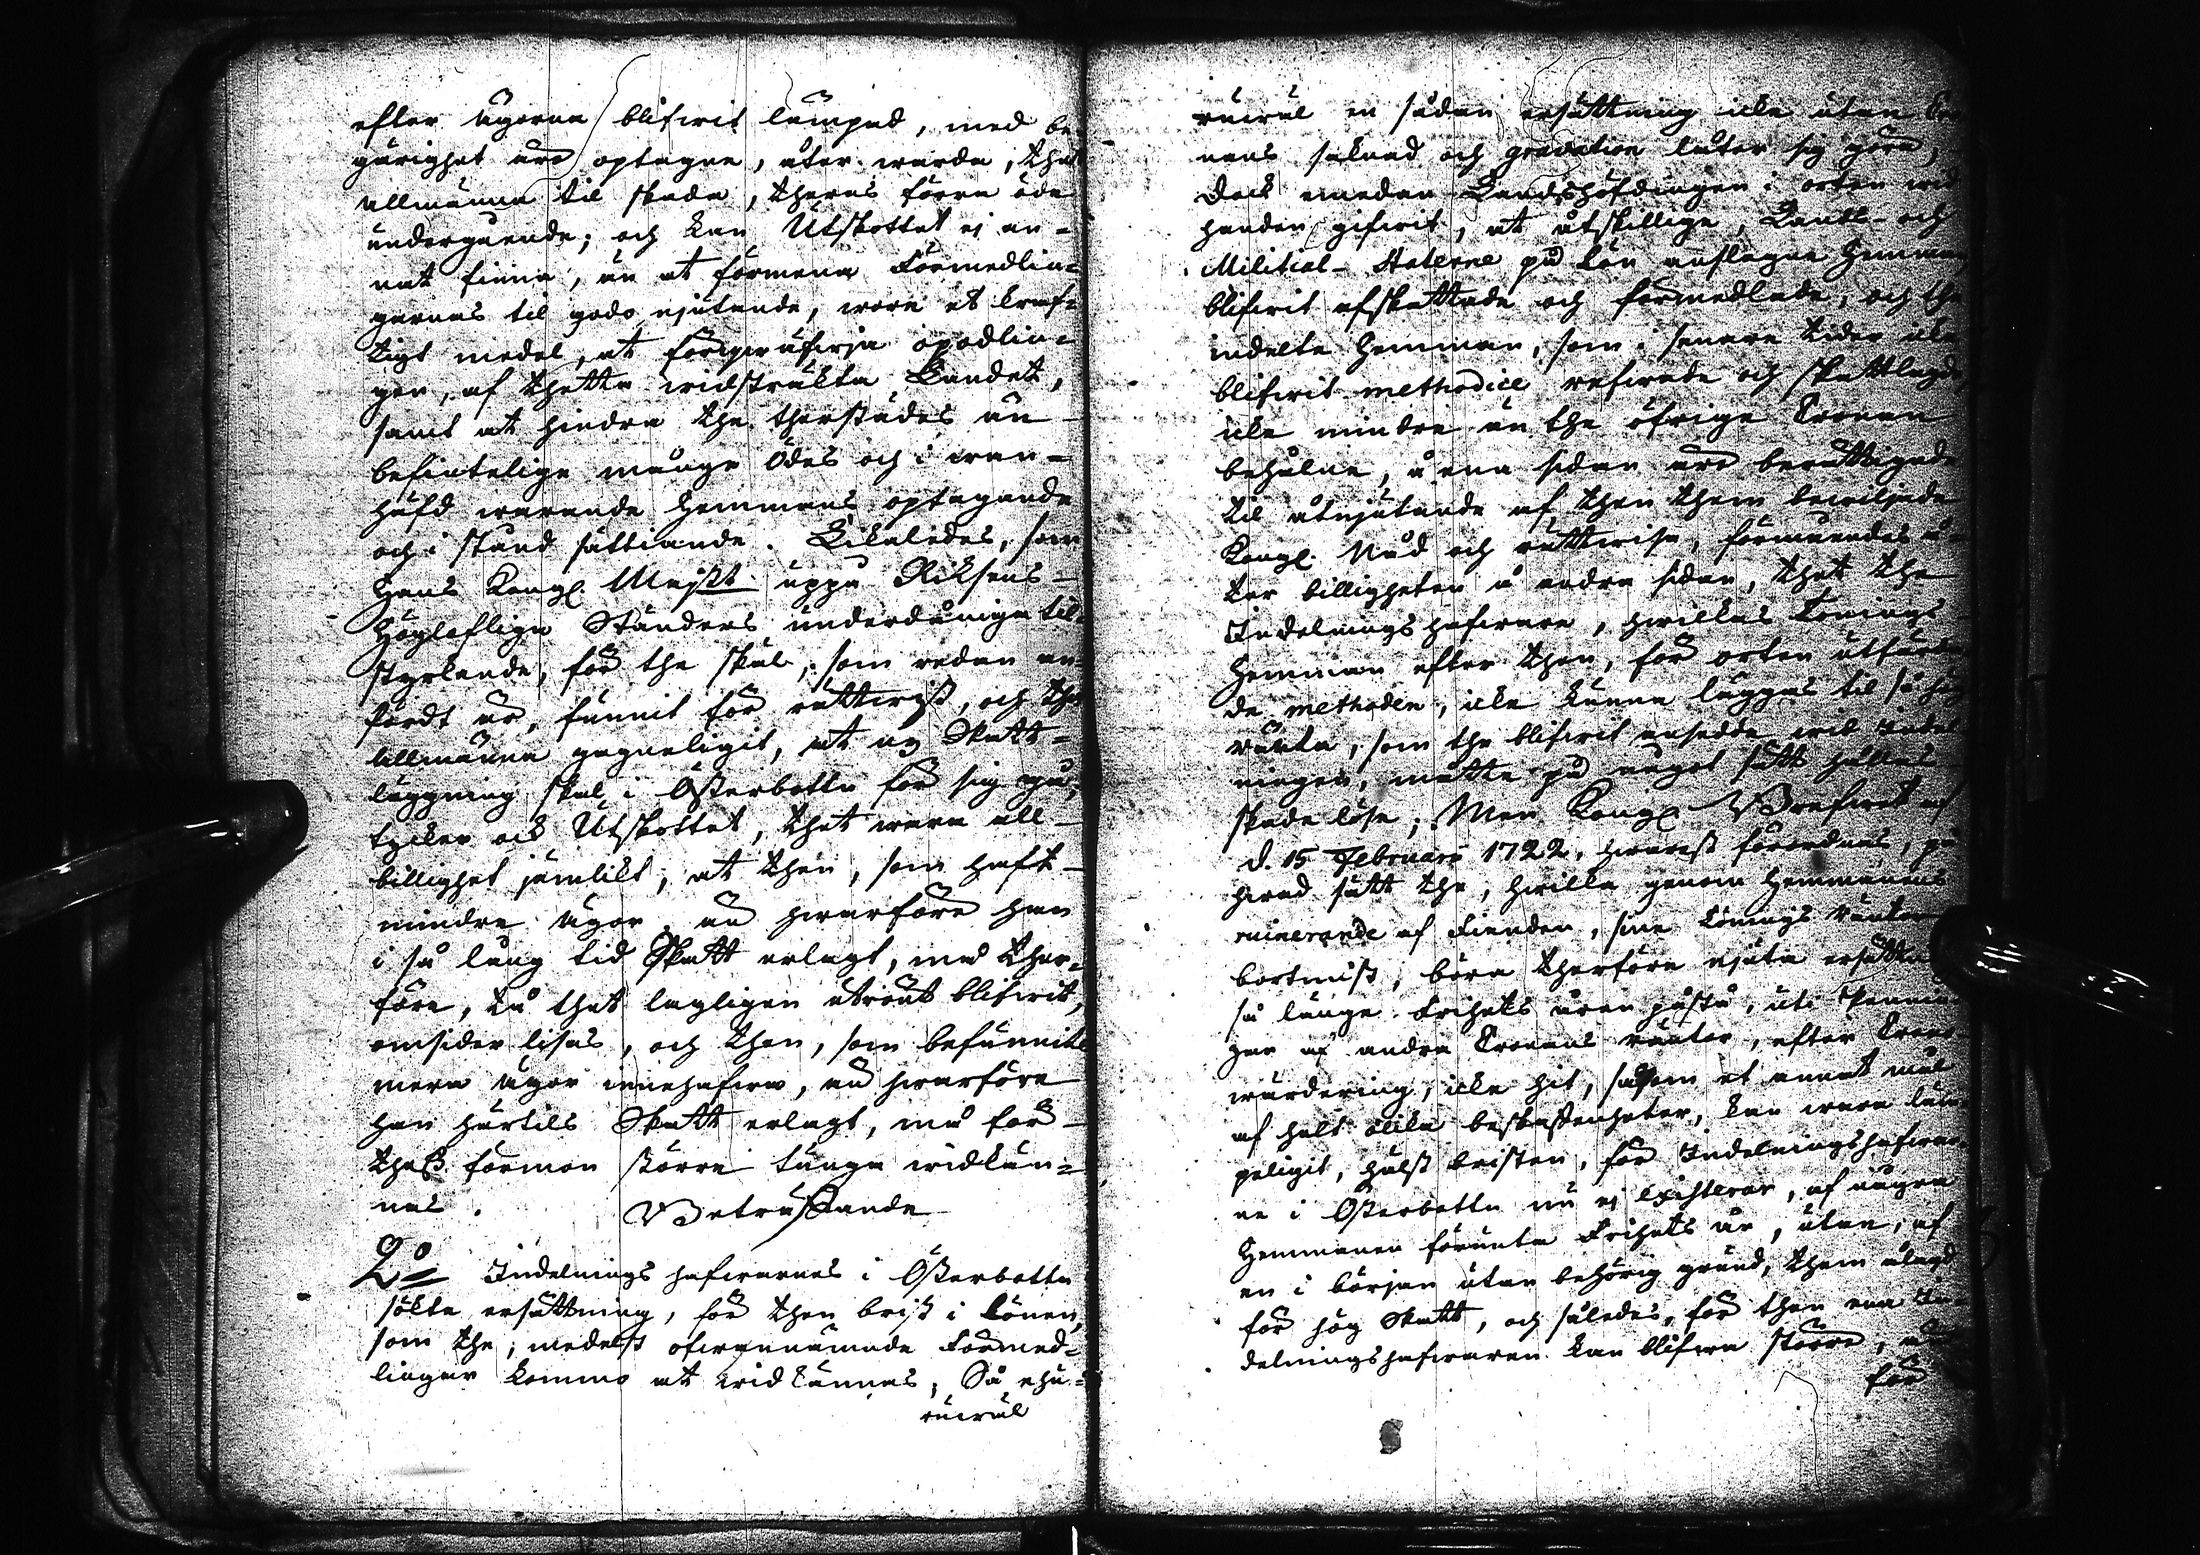 efter ägorna blifwit lämpad, med be-
gärighet äro optagne, åter warda, thet
allmänna til skada, theras förra öde
undergående; och kan Utskottet ej an-
nat finna, än at förmena Förmedlin-
garnas til godo njutande, wore et kraf-
tigt medel, at förqwäfwja opodlin-
gen, af thetta widsträkta Landet,
samt at hindra the therstädes än-
befintelige många Ödes och i wan-
häfd warande Hemmans optagande
och i stånd sättiande. Likaledes, som
Hans Kongl. Majst. uppå Riksens
Höglofliga Ständers underdåniga til-
styrkande, för the skäl, som redan an-
fördt är, funnit för rättwist, och thet
allmänna gagneligit, at ny Skatt-
läggning skal i Österbotten för sig gå,
tycker ock Utskottet, thet wara all-
billighet jämlikt, at then, som haft
mindre ägor, än hwarföre han
i så lång tid Skatt erlagt, må ther-
före, då thet lagligen utrönt blifwit,
omsider lisas, och then, som befunnits
mera ägor innehafwa, än hwarföre
han härtils Skatt erlagt, må för
thess förmon större tunga widkän-
nas. Beträffande
2o Indelnings hafwarnas i Österbotten
sökte ersättning, för then brist i Lönen,
som the, medelst ofwannämnde Förmed-
lingar komma at widkännas; Så ehu-
ruwäl
ruwäl en sådan ersättning icke utan Cro-
nans saknad och gravation låter sig göra,
dock emedan Landshöfdingen i orten wid
handen gifwit, at åtskillige, Landt- och
Militial-Staterne på Lön anslagne Hemman
blifwit afskattade och förmedlade, och the
indelte Hemman, som i senare tider icke
blifwit methodice refwade och skattlagde,
icke mindre än the öfrige Cronan
behålne, å ena sidan äro berättigade
til åtnjutande af then them bewiljade
Kongl. Nåd och rättwisa, förmendes å-
ter billigheten å andra sidan, thet the
Indelningshafware, hwilkas Lönings
Hemman efter then, för orten utfärda-
de methoden, icke kunna läggas til så hög
ränta, som the blifwit ansedde wid Indel-
ningen, måtte på något sätt hållas
skadelöse; Men Kongl. Brefwet af
d. 15 Februarii 1722, hwarest förordnas, på
hwad sätt the, hwilka genom Hemmanens
ruinerande af Fienden, sine Lönings Räntor
bortmist, böra therföre njuta ersättning
så länge Frihets åren påstå, uti Pennin-
gar af andra Cronans räntor, efter Crono
wärdering, icke hit, såsom et annat mål
af helt olika beskaffenheter, kan wara läm-
peligit, hälst bristen, för Indelningshafwar-
ne i Österbotten nu ej existerar, af någre
Hemmanen förunte Frihets år, utan, af
en i början utan behörig grund, them ålagd
för hög Skatt, och således, för then ena In-
delningshafwaren kan blifwa större,
för